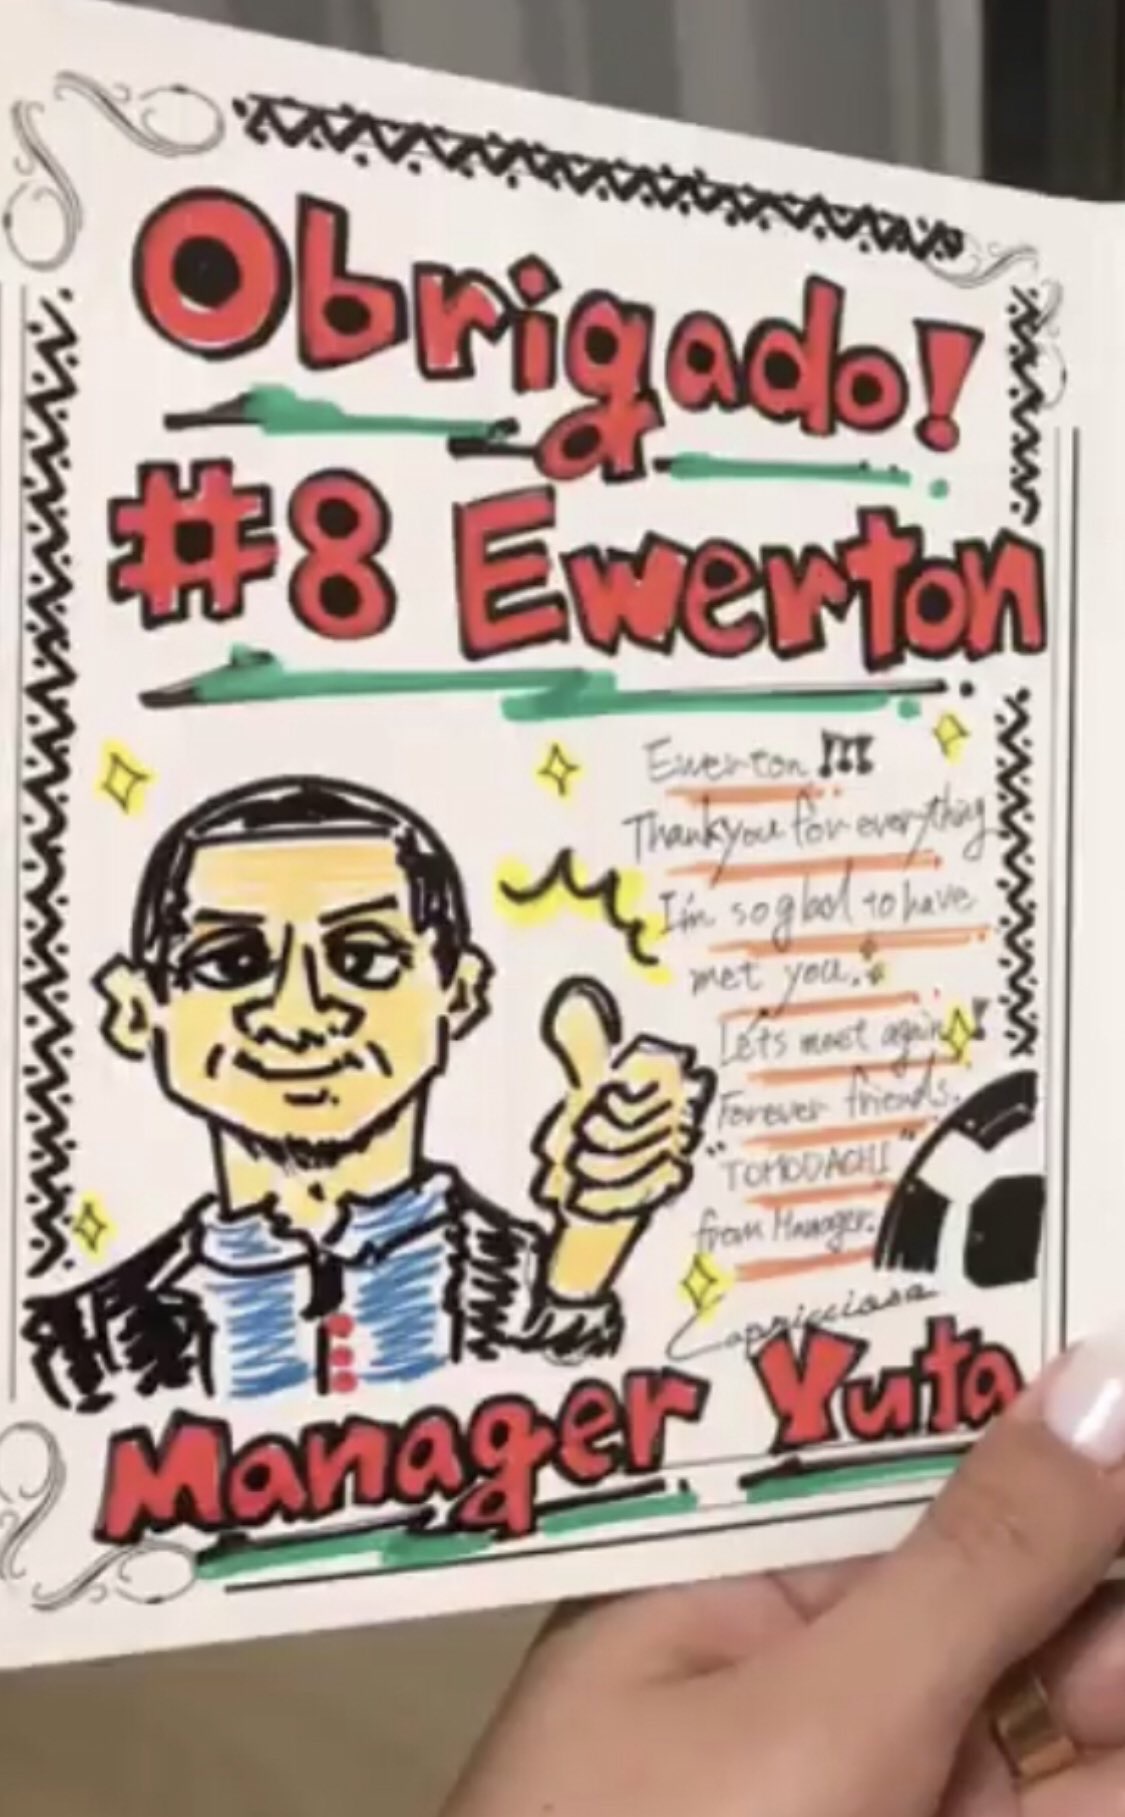 Obrigado!
#8 Ewerton
Ewerton!!!
Thank you for everything
I'm so glad to have
met you.
Let's meet again!
Forever friends.
"TOMODACHI"
from Manager.
Capricciosa
Manager Yuta